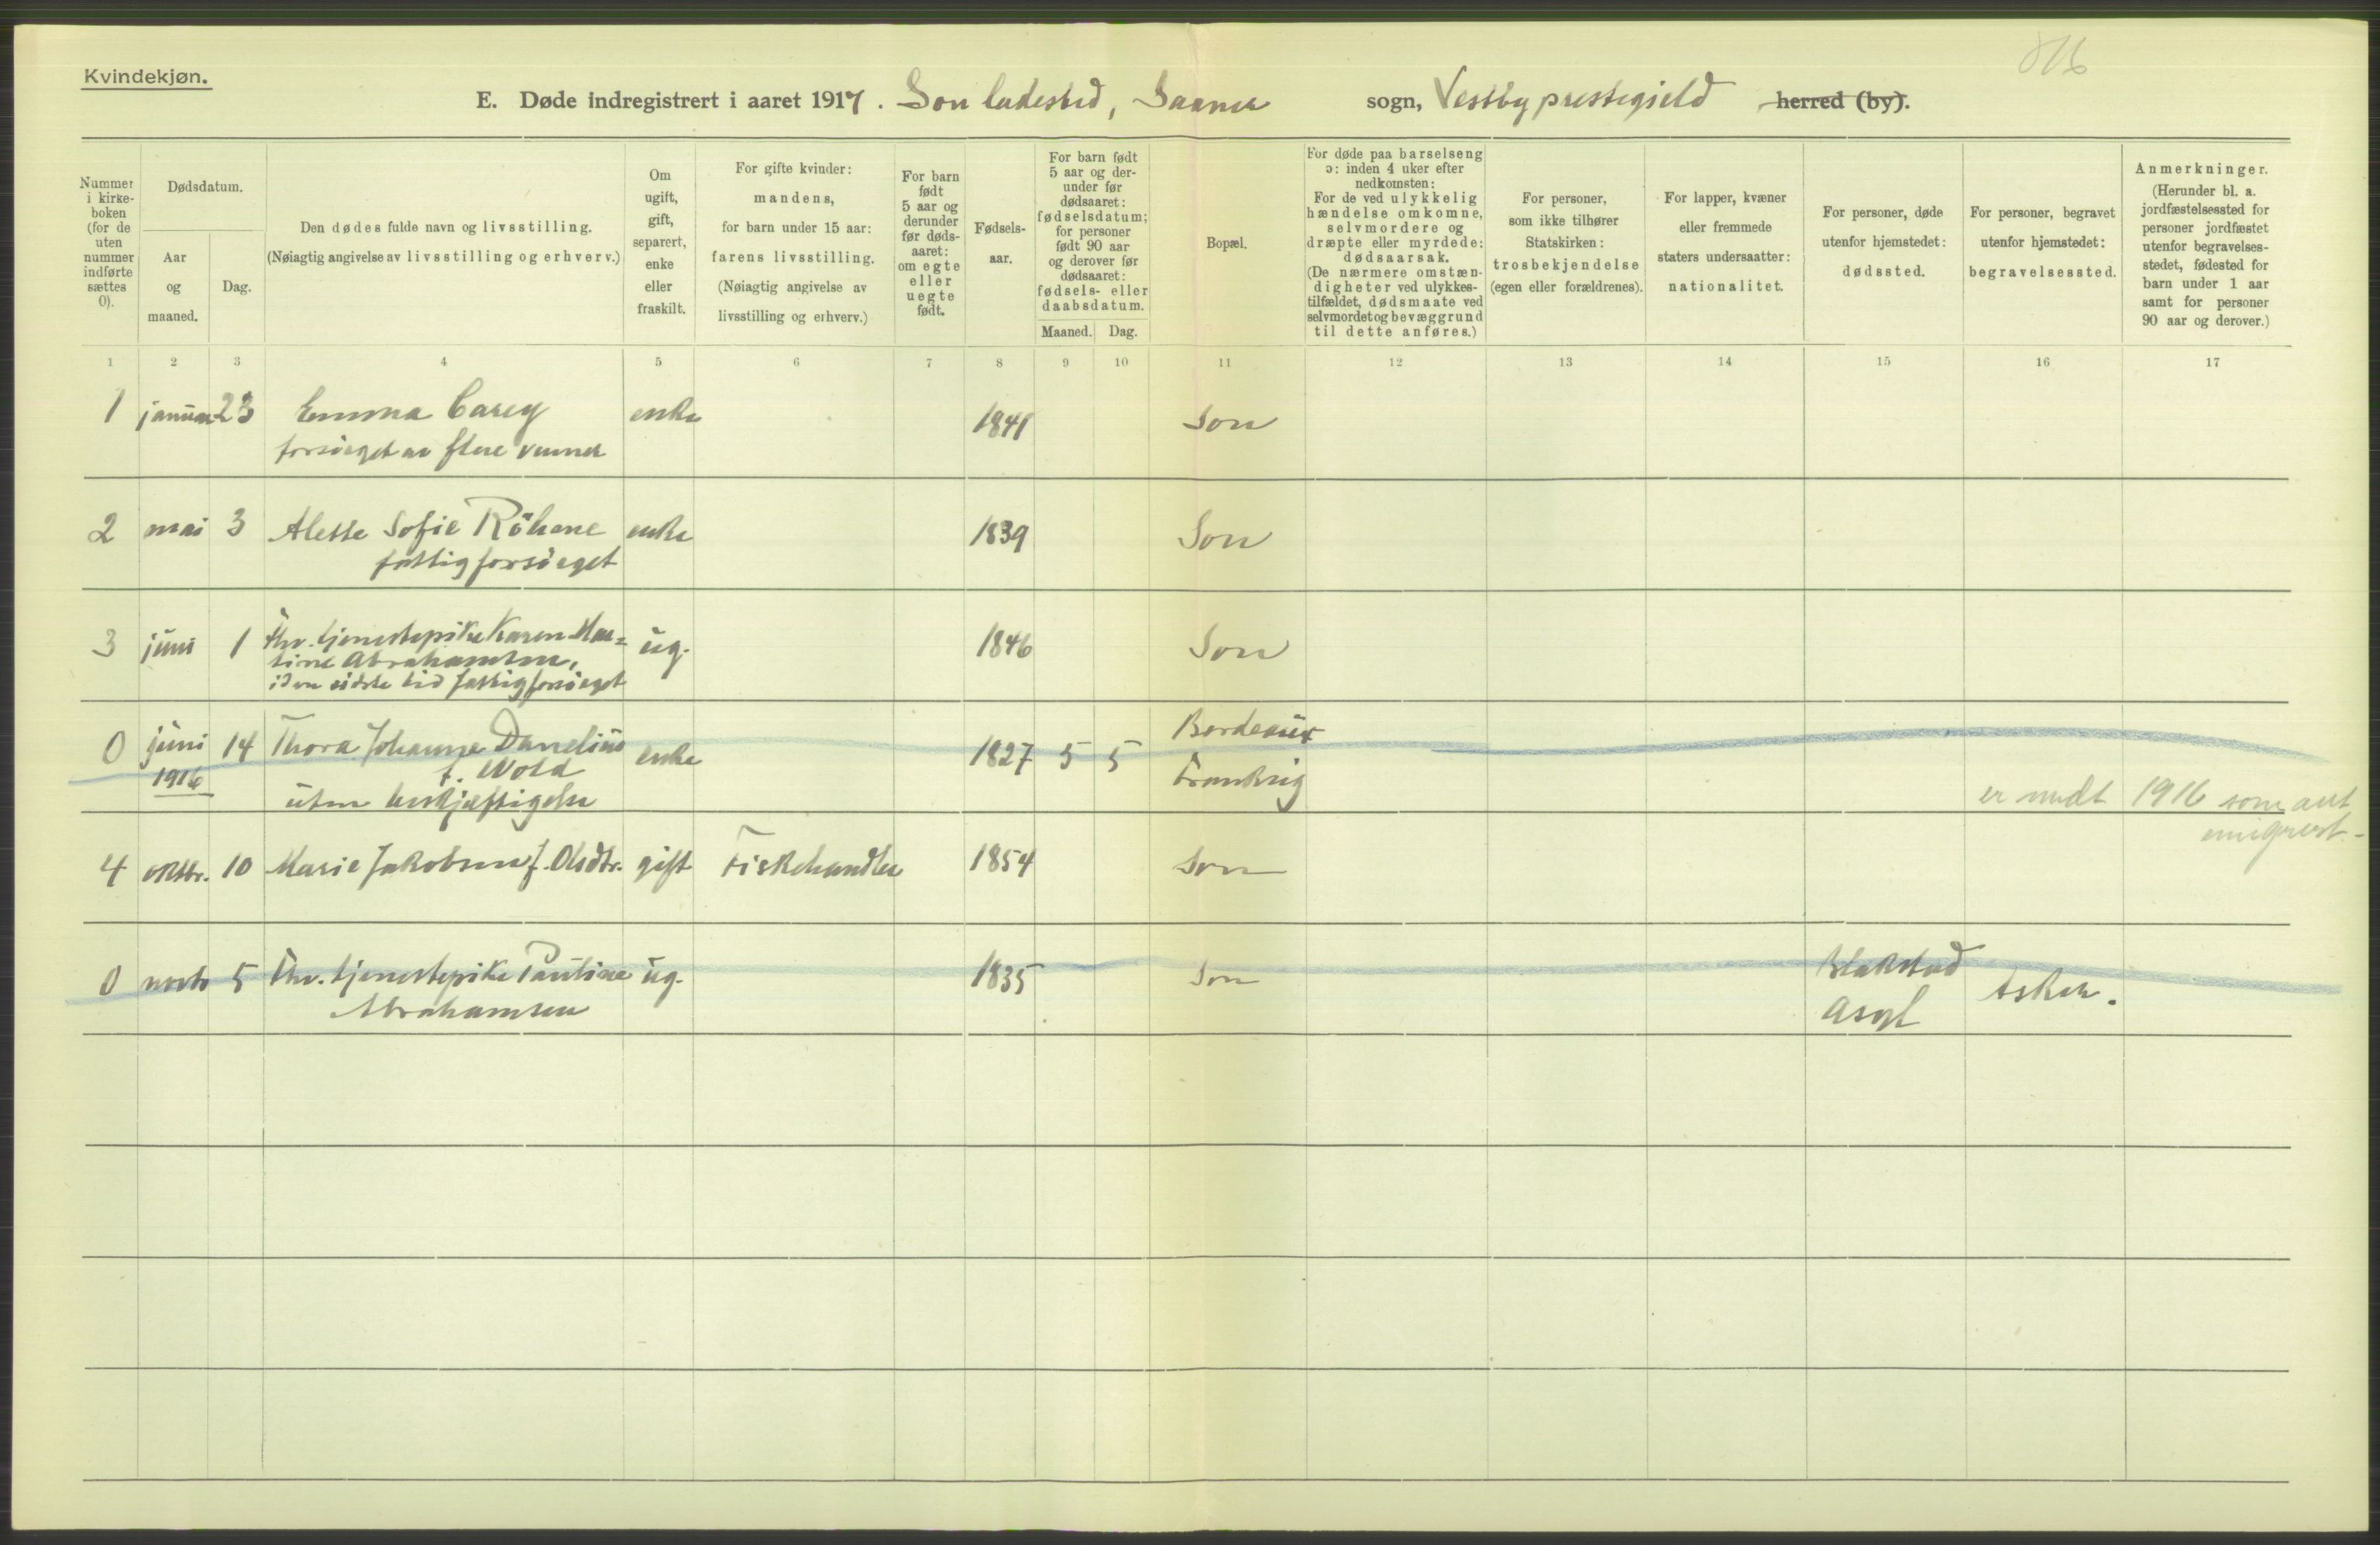 Kvindekjøn.
E. Døde indregistrert i aaret 1917. Son ladested, Saaner sogn, Vestby prestegield herred (by).
Nummer i kirke-boken (for de uten nummer indførte sættes 0).
Dødsdatum.
Aar og maaned.
Dag.
Den dødes fulde navn og livsstilling.
(Nøiagtig angivelse av livsstilling og erhverv.)
Om ugift, gift, separert, enke eller fraskilt.
For gifte kvinder: mandens, for barn under 15 aar: farens livsstilling. (Nøiagtig angivelse av livsstilling og erhverv.)
For barn født 5 aar og derunder før døds-aaret: om egte eller uegte født.
Fødsels-aar.
For barn født 5 aar og der-under før dødsaaret: fødselsdatum; for personer født 90 aar og derover før dødsaaret: fødsels- eller daabsdatum.
Maaned. Dag.
Bopæl.
For døde paa barselseng ɔ: inden 4 uker efter nedkomsten: For de ved ulykkelig hændelse omkomne, selvmordere og dræpte eller myrdede: dødsaarsak. (De nærmere omstæn-digheter ved ulykkes-tilfældet, dødsmaate ved selvmordet og bevæggrund til dette anføres.)
For personer, som ikke tilhører Statskirken: trosbekjendelse (egen eller forældrenes).
For lapper, kvæner eller fremmede staters undersaatter: nationalitet.
For personer, døde utenfor hjemstedet: dødssted.
For personer, begravet utenfor hjemstedet: begravelsessted.
Anmerkninger. (Herunder bl. a. jordfæstelsessted for personer jordfæstet utenfor begravelses-stedet, fødested for barn under 1 aar samt for personer 90 aar og derover.)
1 2 3 4 5 6 7 8 9 10 11 12 13 14 15 16 17
1 januar 23 Emma Carey enke 1841 Son
forsörget av flere venner
2 mai 3 Alette Sofie enke 1839 Son
fattigforsörget
3 juni 1 Fhv. tjenestepike Karen Mar= ug. 1846 Son
tine Abrahamsen,
i den sidste tid fattigforsörget
0 juni 14 Thora Johanne Danelius enke 1827 5 5 Bordeaux
1916 f. Wold Frankrig
uten beskjæftigelse
er medt 1916 som
emigrert.
4 oktbr. 10 Marie Jakobsen f. Olsdtr. gift Fiskehandler 1854 Son
0 novbr 5 Fhv. tjenestepike Pauline ug. 1835 Son Blakstad Asker.
Abrahamsen Asyl